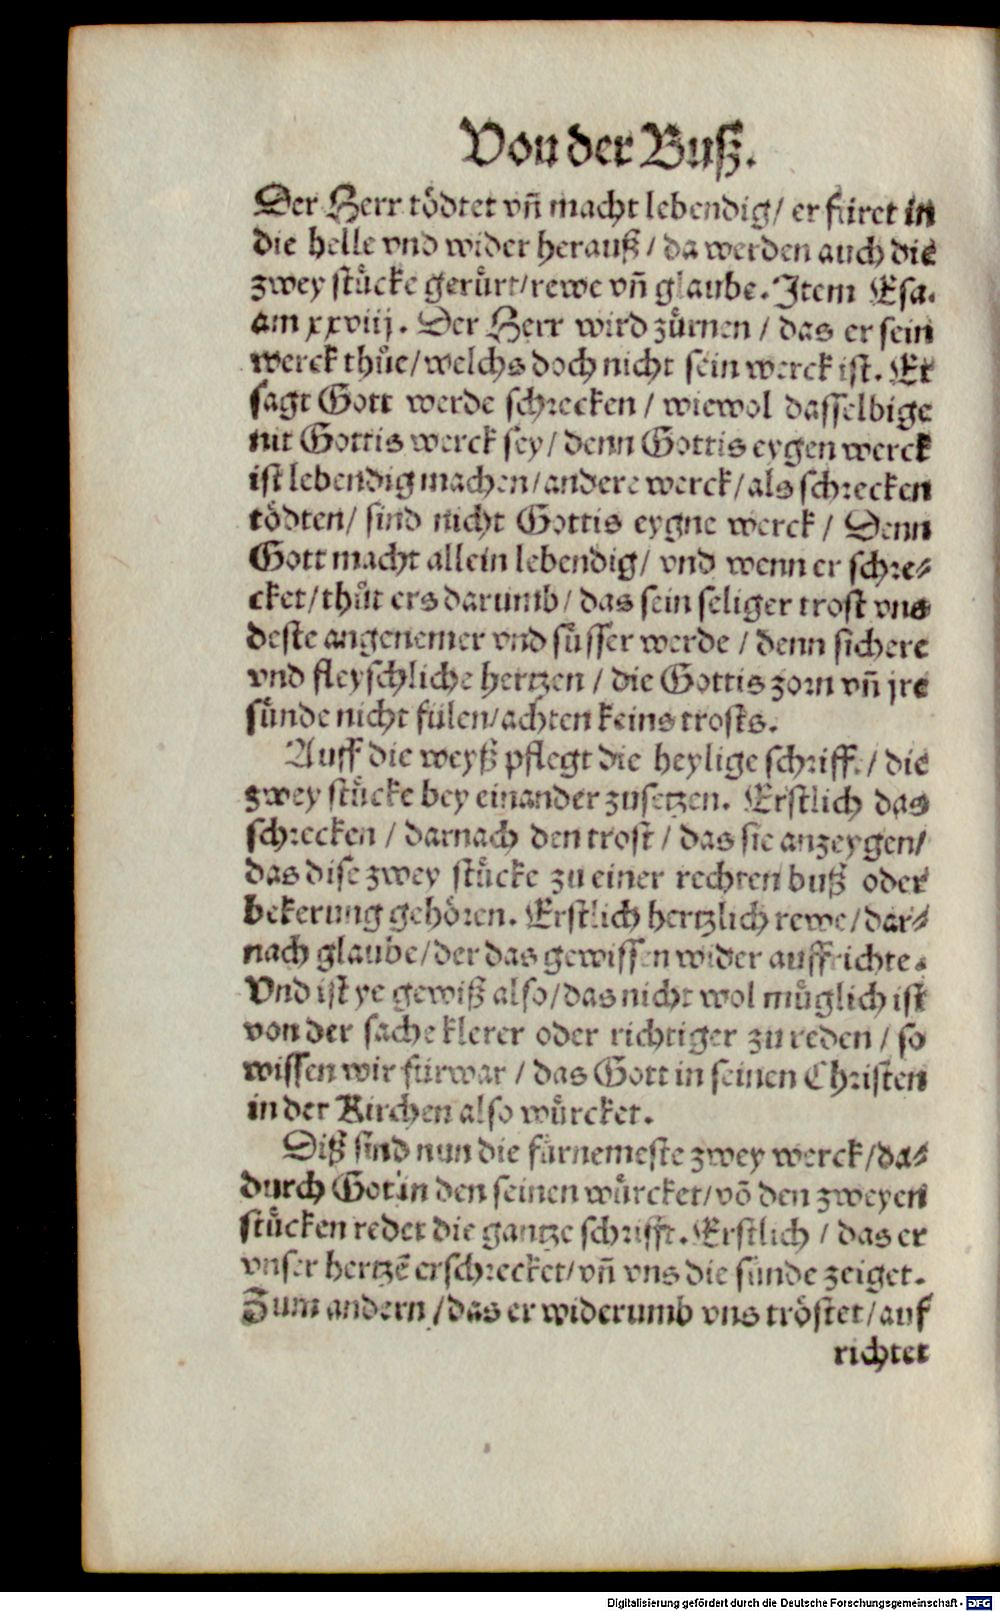 Von der Buß.
Der Herr tödtet vñ macht lebendig/ er füret in
die helle vnd wider herauß / da werden auch die
zwey stücke gerürt/rewe vñ glaube. Item Esa.
am xxviij. Der Herr wird zürnen / das er sein
werck thůe/welchs doch nicht sein werck ist. Er
sagt Gott werde schrecken / wiewol dasselbige
nit Gottis werck sey/ denn Gottis eygen werck
ist lebendig machen/andere werck/als schrecken
tödten/ sind nicht Gottis eygne werck / Denn
Gott macht allein lebendig/ vnd wenn er schre⸗
cket/thůt ers darumb/ das sein seliger trost vns
deste angenemer vnd süsser werde / denn sichere
vnd fleyschliche hertzen / die Gottis zorn vñ jre
sünde nicht fülen/achten keins trosts.
Auff die weyß pflegt die heylige schrifft / die
zwey stücke bey einander zusetzen. Erstlich das
schrecken / darnach den trost / das sie anzeygen/
das dise zwey stücke zu einer rechten buß oder
bekerung gehören. Erstlich hertzlich rewe/dar⸗
nach glaube/der das gewissen wider auffrichte.
Vnd ist ye gewiß also/das nicht wol müglich ist
von der sache klerer oder richtiger zu reden / so
wissen wir fürwar / das Gott in seinen Christen
in der Kirchen also würcket.
Diß sind nun die fürnemeste zwey werck/da⸗
durch Got in den seinen würcket/võ den zweyen
stücken redet die gantze schrifft. Erstlich / das er
vnser hertzẽ erschrecket/vñ vns die sünde zeiget.
Zum andern /das er widerumb vns tröstet/auf
richtet
Digitalisierung gefördert durch die Deutsche Forschungsgemeinschaft - DFG